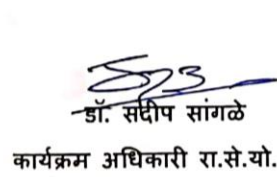 डॉ. संदीप सांगळे
कार्यक्रम अधिकारी रा.से.यो.